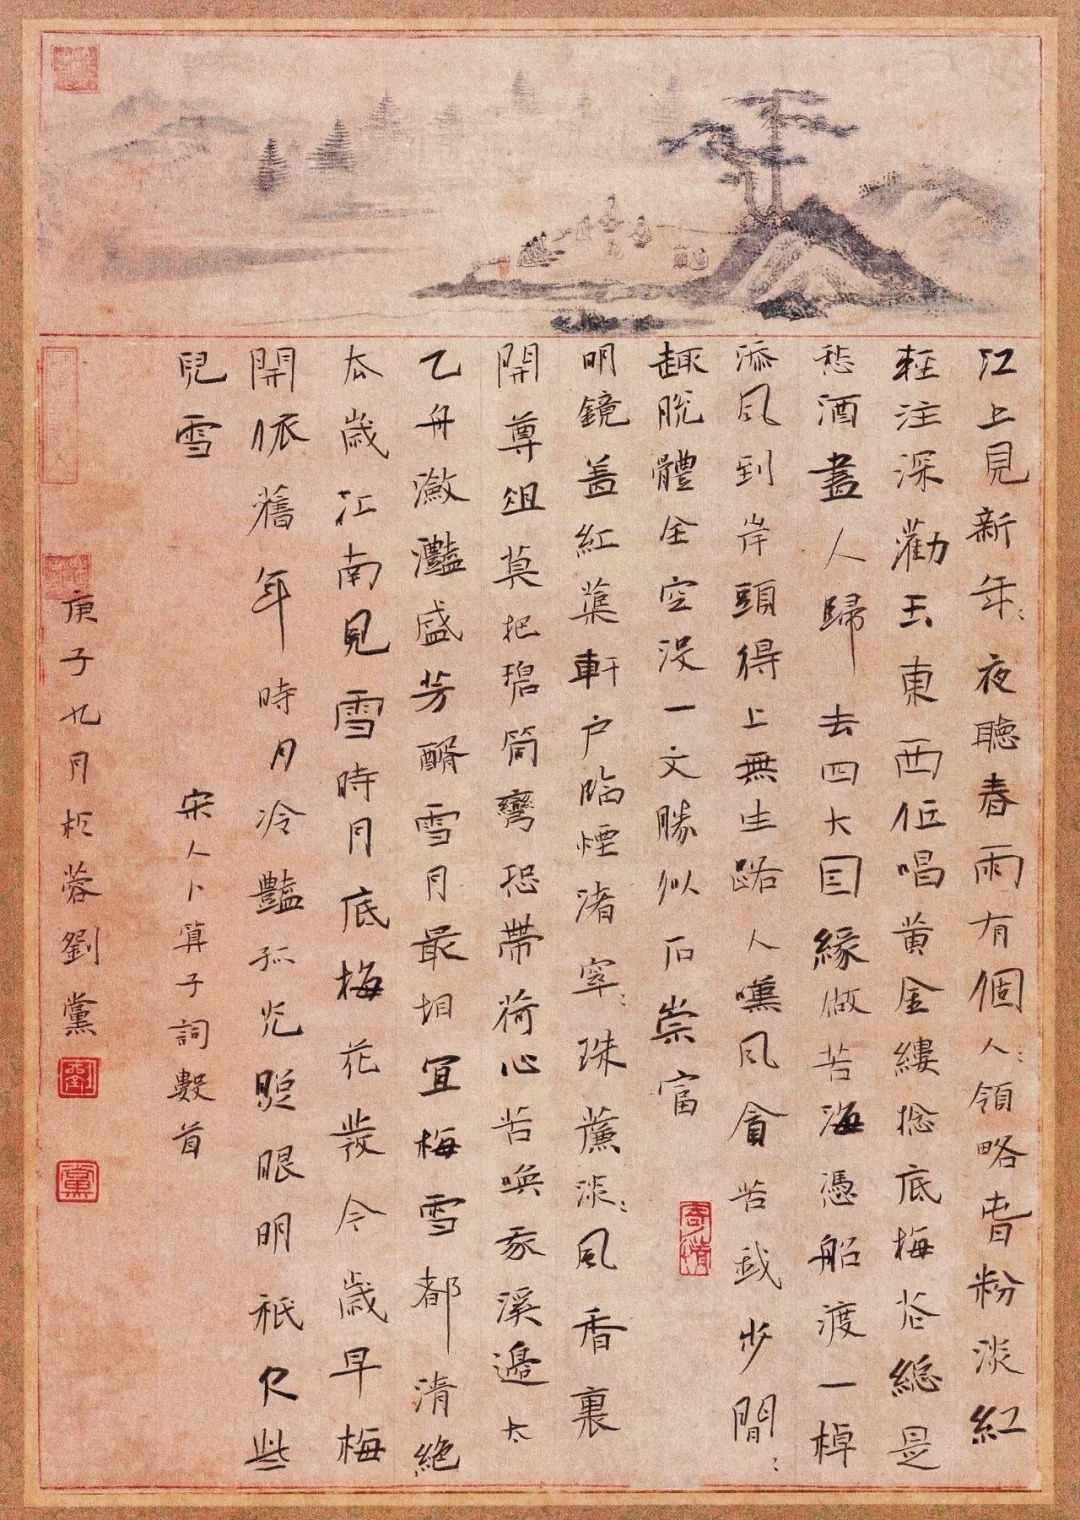 江上見新年〻夜聽春雨有個人〻領略春粉淡紅
輕注深勸玉東西低唱黄金縷捻底梅花總是
愁酒盡人歸去四大因緣做苦海憑船渡一棹
添風到岸頭得上無生路人嘆風貪苦我步閒〻
趣脫體全空没一文勝似石崇富
寄情
明鏡蓋紅蕖軒户臨煙渚窣〻珠簾淡〻風香裏
開尊俎莫把碧筩彎恐帶荷心苦喚我溪邊太
乙舟瀲灧盛芳醑雪月最相宜梅雪都清絶
去歲江南見雪時月底梅花發今歲早梅
開依舊年時月冷豔孤光照眼明祇欠些
兒雪
宋人卜算子詞數首
庚子九月松蓉劉黨
劉
黨